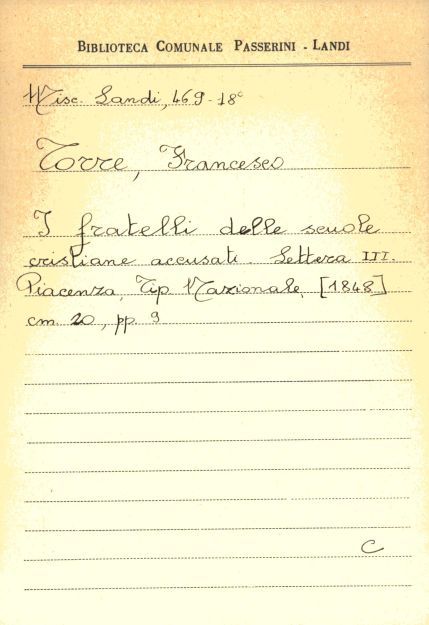 BIBLIOTECA COMUNALE PASSERINI - LANDI
Misc. Landi, 469-18°
Torre, Francesco
I fratelli delle scuole
cristiane accusati. Lettera III.
Piacenza, Tip Nazionale, [1848]
cm. 20, pp. 9
C